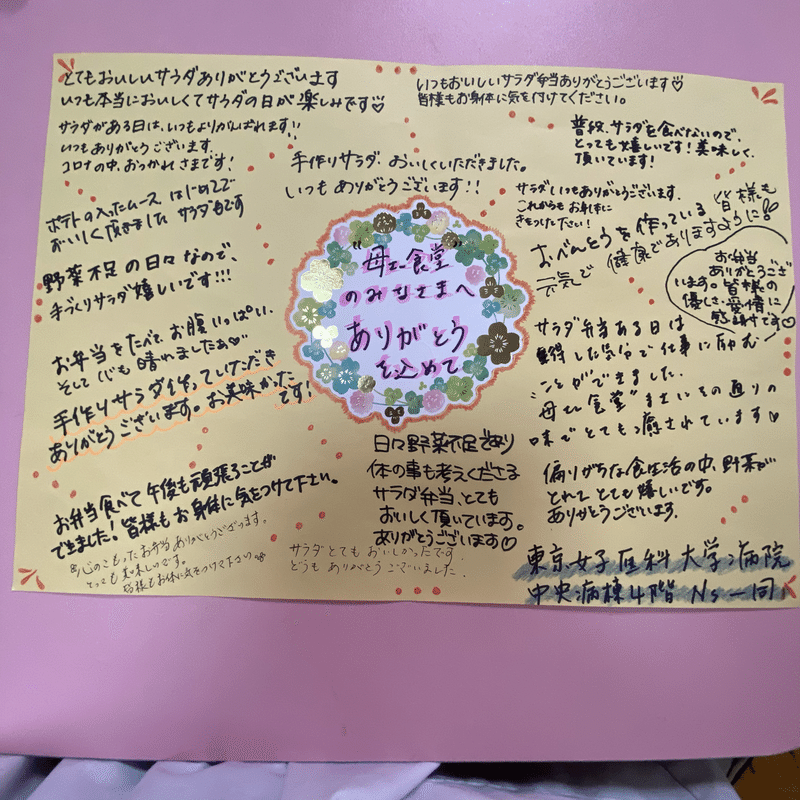 とてもおいしいサラダありがとうございます
いつも本当においしくてサラダの日が楽しみです♡
サラダがある日は、いつもよりがんばれます!!
いつもありがとうございます。
コロナの中、おつかれさまです!
いつもおいしいサラダ弁当ありがとうございます♡
皆様もお身体に気を付けてください。
手作りサラダ、おいしくいただきました。
いつもありがとうございます!!
普段、サラダを食べないので、
とっても嬉しいです!美味しく
頂いています!
ポテトの入ったムース、はじめてで
おいしく頂きました サラダも です
サラダいつもありがとうございます。
これからもお身体に
きをつけて下さい!
野菜不足の日々なので、
手づくりサラダ嬉しいです!!!
おべんとうを作っている皆様も
元気で健康でありますように!
お弁当
ありがとうござ
います。皆様の
優しさ・愛情に
感謝です♡
"母さん食堂"
のみなさまへ
ありがとう
を込めて
お弁当をたべて、お腹いっぱい。
そして心も晴れましたぁ♡
手作りサラダ作っていただき
ありがとうございます。お美味かった
です!
サラダ弁当ある日は
した気分で仕事に励む
ことができました。
母さん食堂"まさにその通りの
味でとても癒されています♡
お弁当食べて午後も頑張ることが
できました!皆様もお身体に気をつけて下さい。
日々野菜不足であり
体の事も考えくださる
サラダ弁当、とても
おいしく頂いています。
ありがとうございます♡
偏りがちな食生活の中、野菜が
とれて とても嬉しいです。
ありがとうございます。
心のこもったお弁当ありがとうございます。
とっても美味しいです。
皆様もお体に気をつけて下さい
サラダとてもおいしかったです
どうもありがとうございました.
東京女子医科大学病院
中央病棟4階 Ns一同